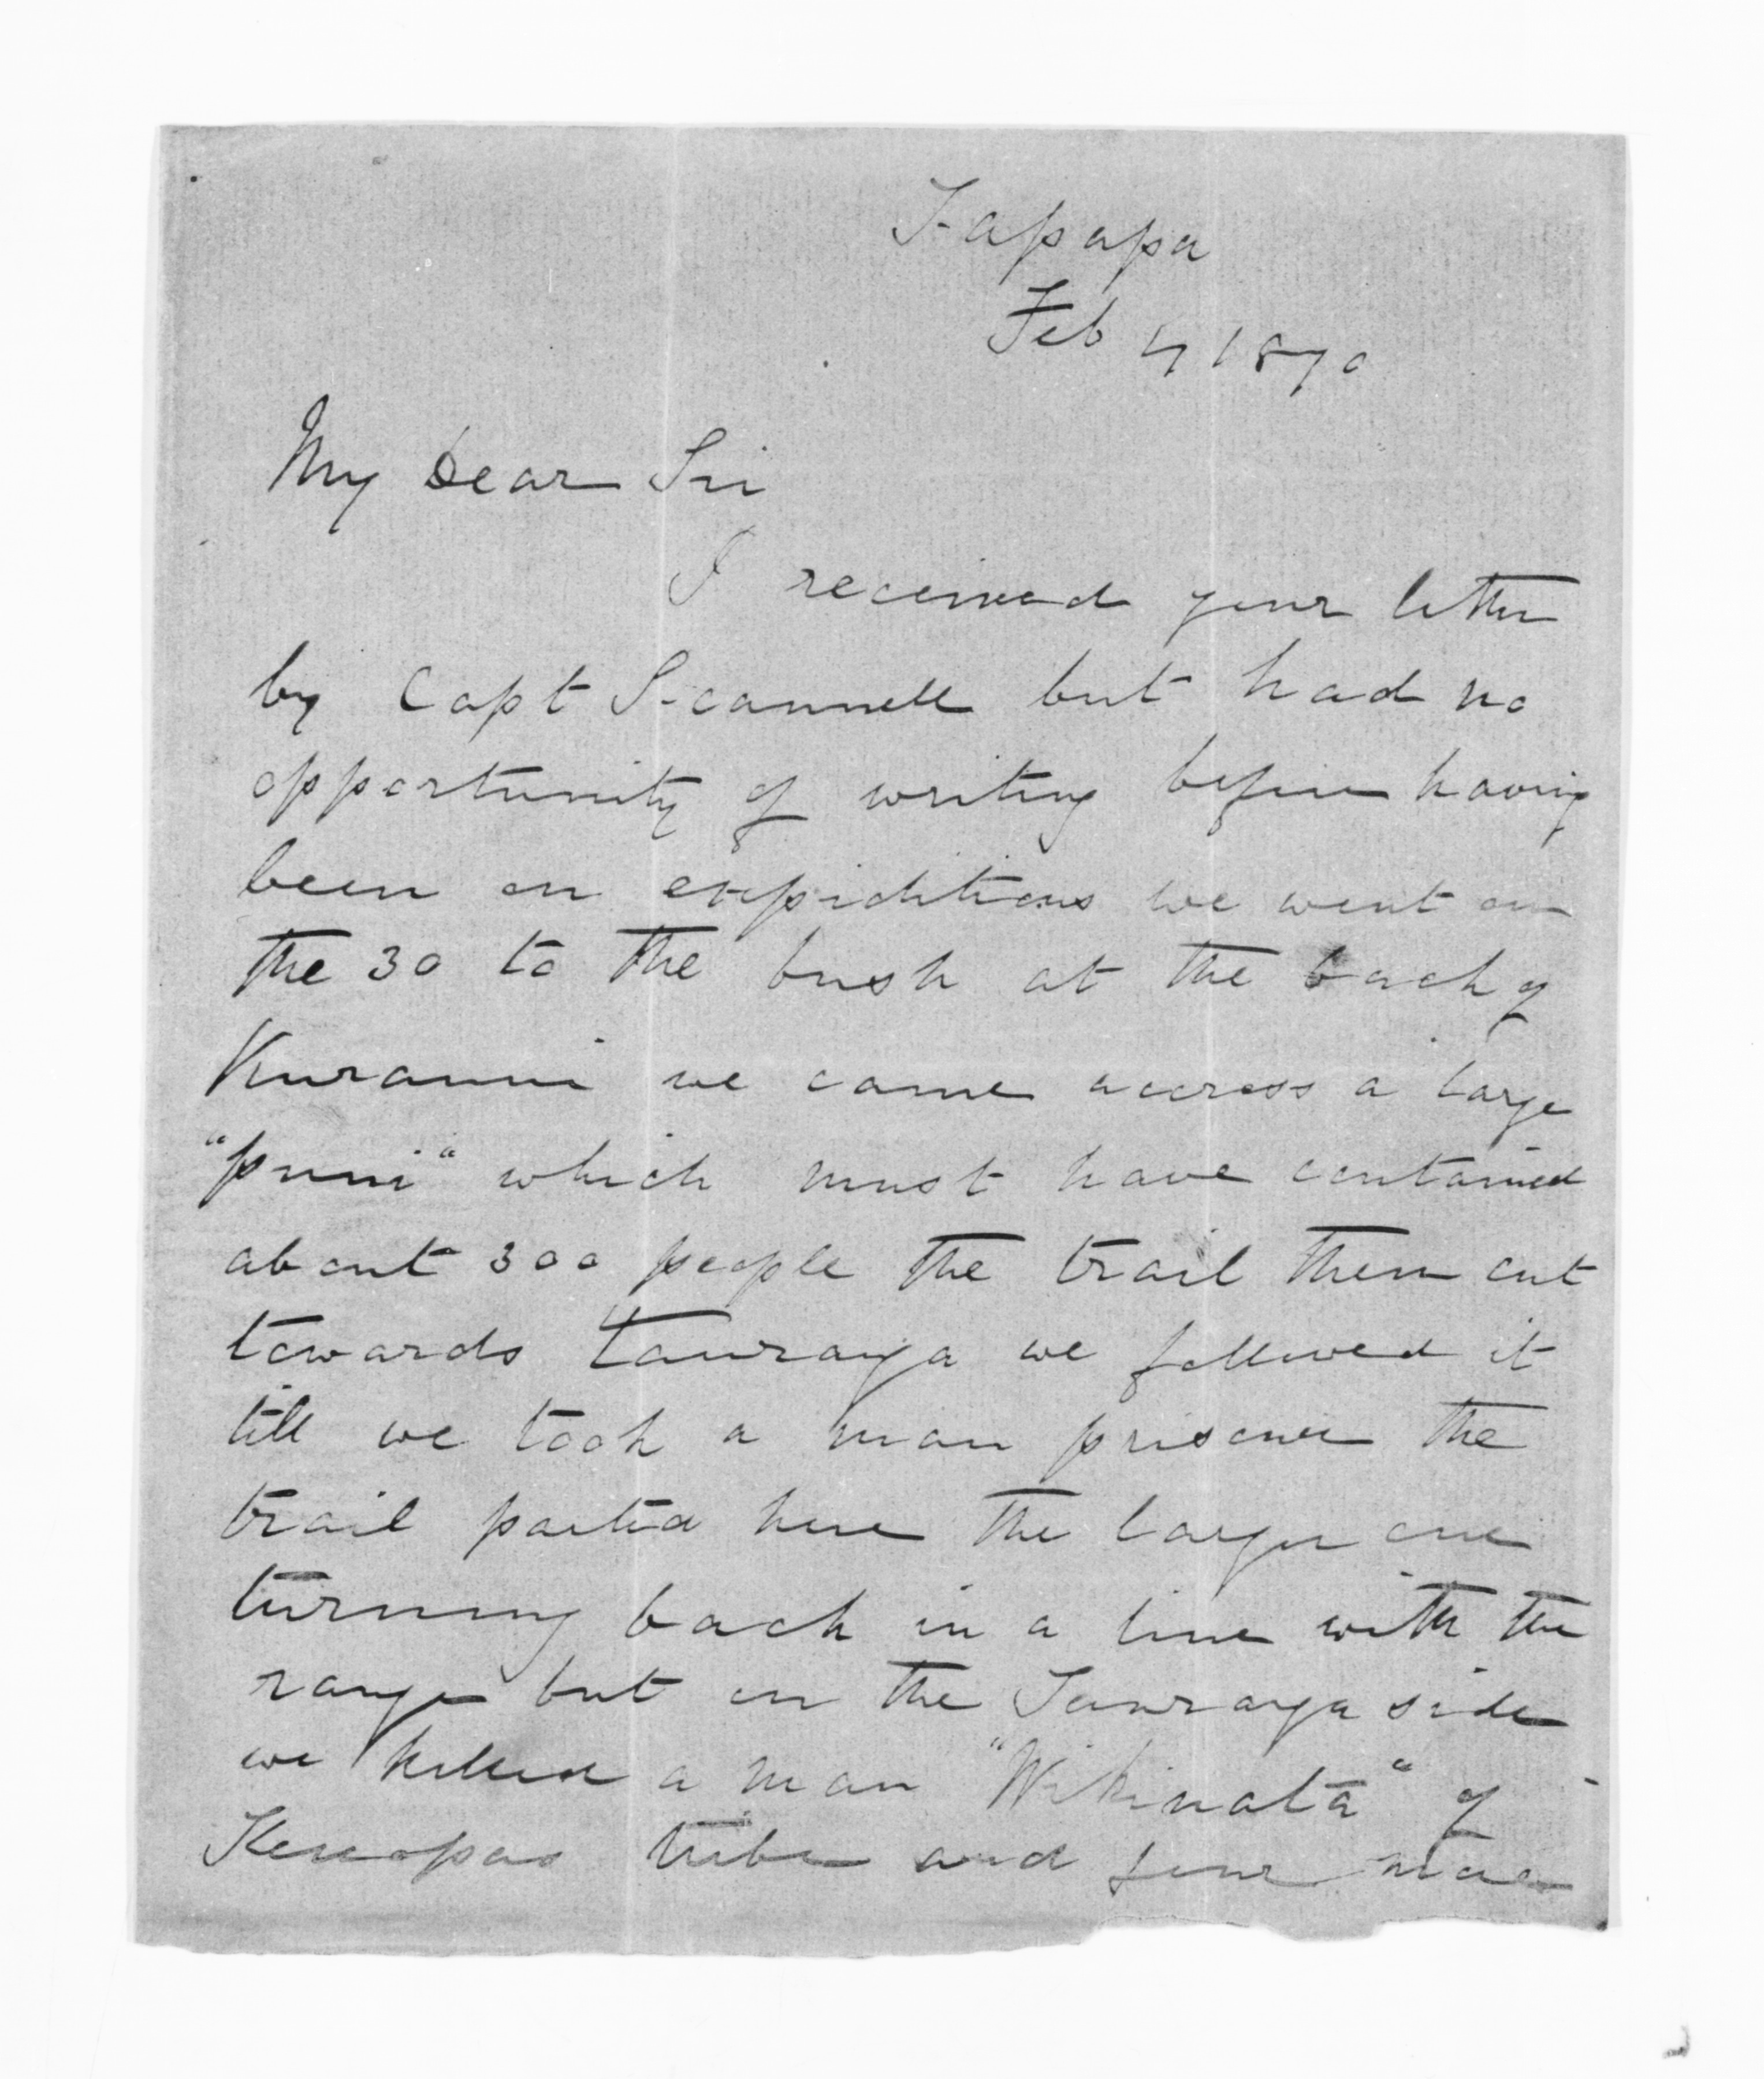 Tapapa
Feb 4 1870
My Dear Sir
I received your letter
by Capt Scannell but had no
opportunity of writing before having
been on expiditions we went on
the 30 to the bush at the back of
Kuranui we came accross a large
"puni" which must have contained
about 300 people the trail then cut
towards Tauranga we followed it
till we took a man prisoner the
trail parted here the larger one
turning back in a line with the
range but on the Tauranga side
we killed a man "Wikinata" of
tribe and four more